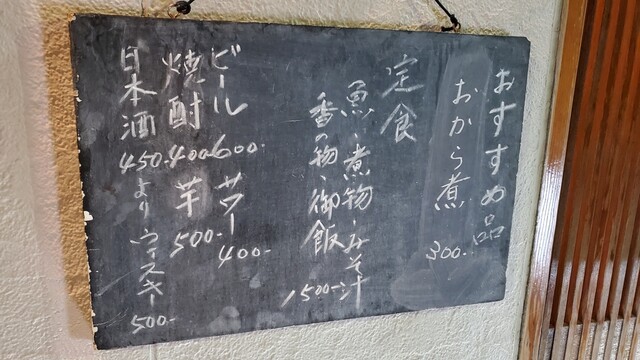 おすすめ品
おから煮 300-
定食
魚・煮物・みそ汁
香の物・御飯 1500-
ビール 600- サワー 400-
焼酎 400 芋 500-
日本酒 450より ウィスキー 500-